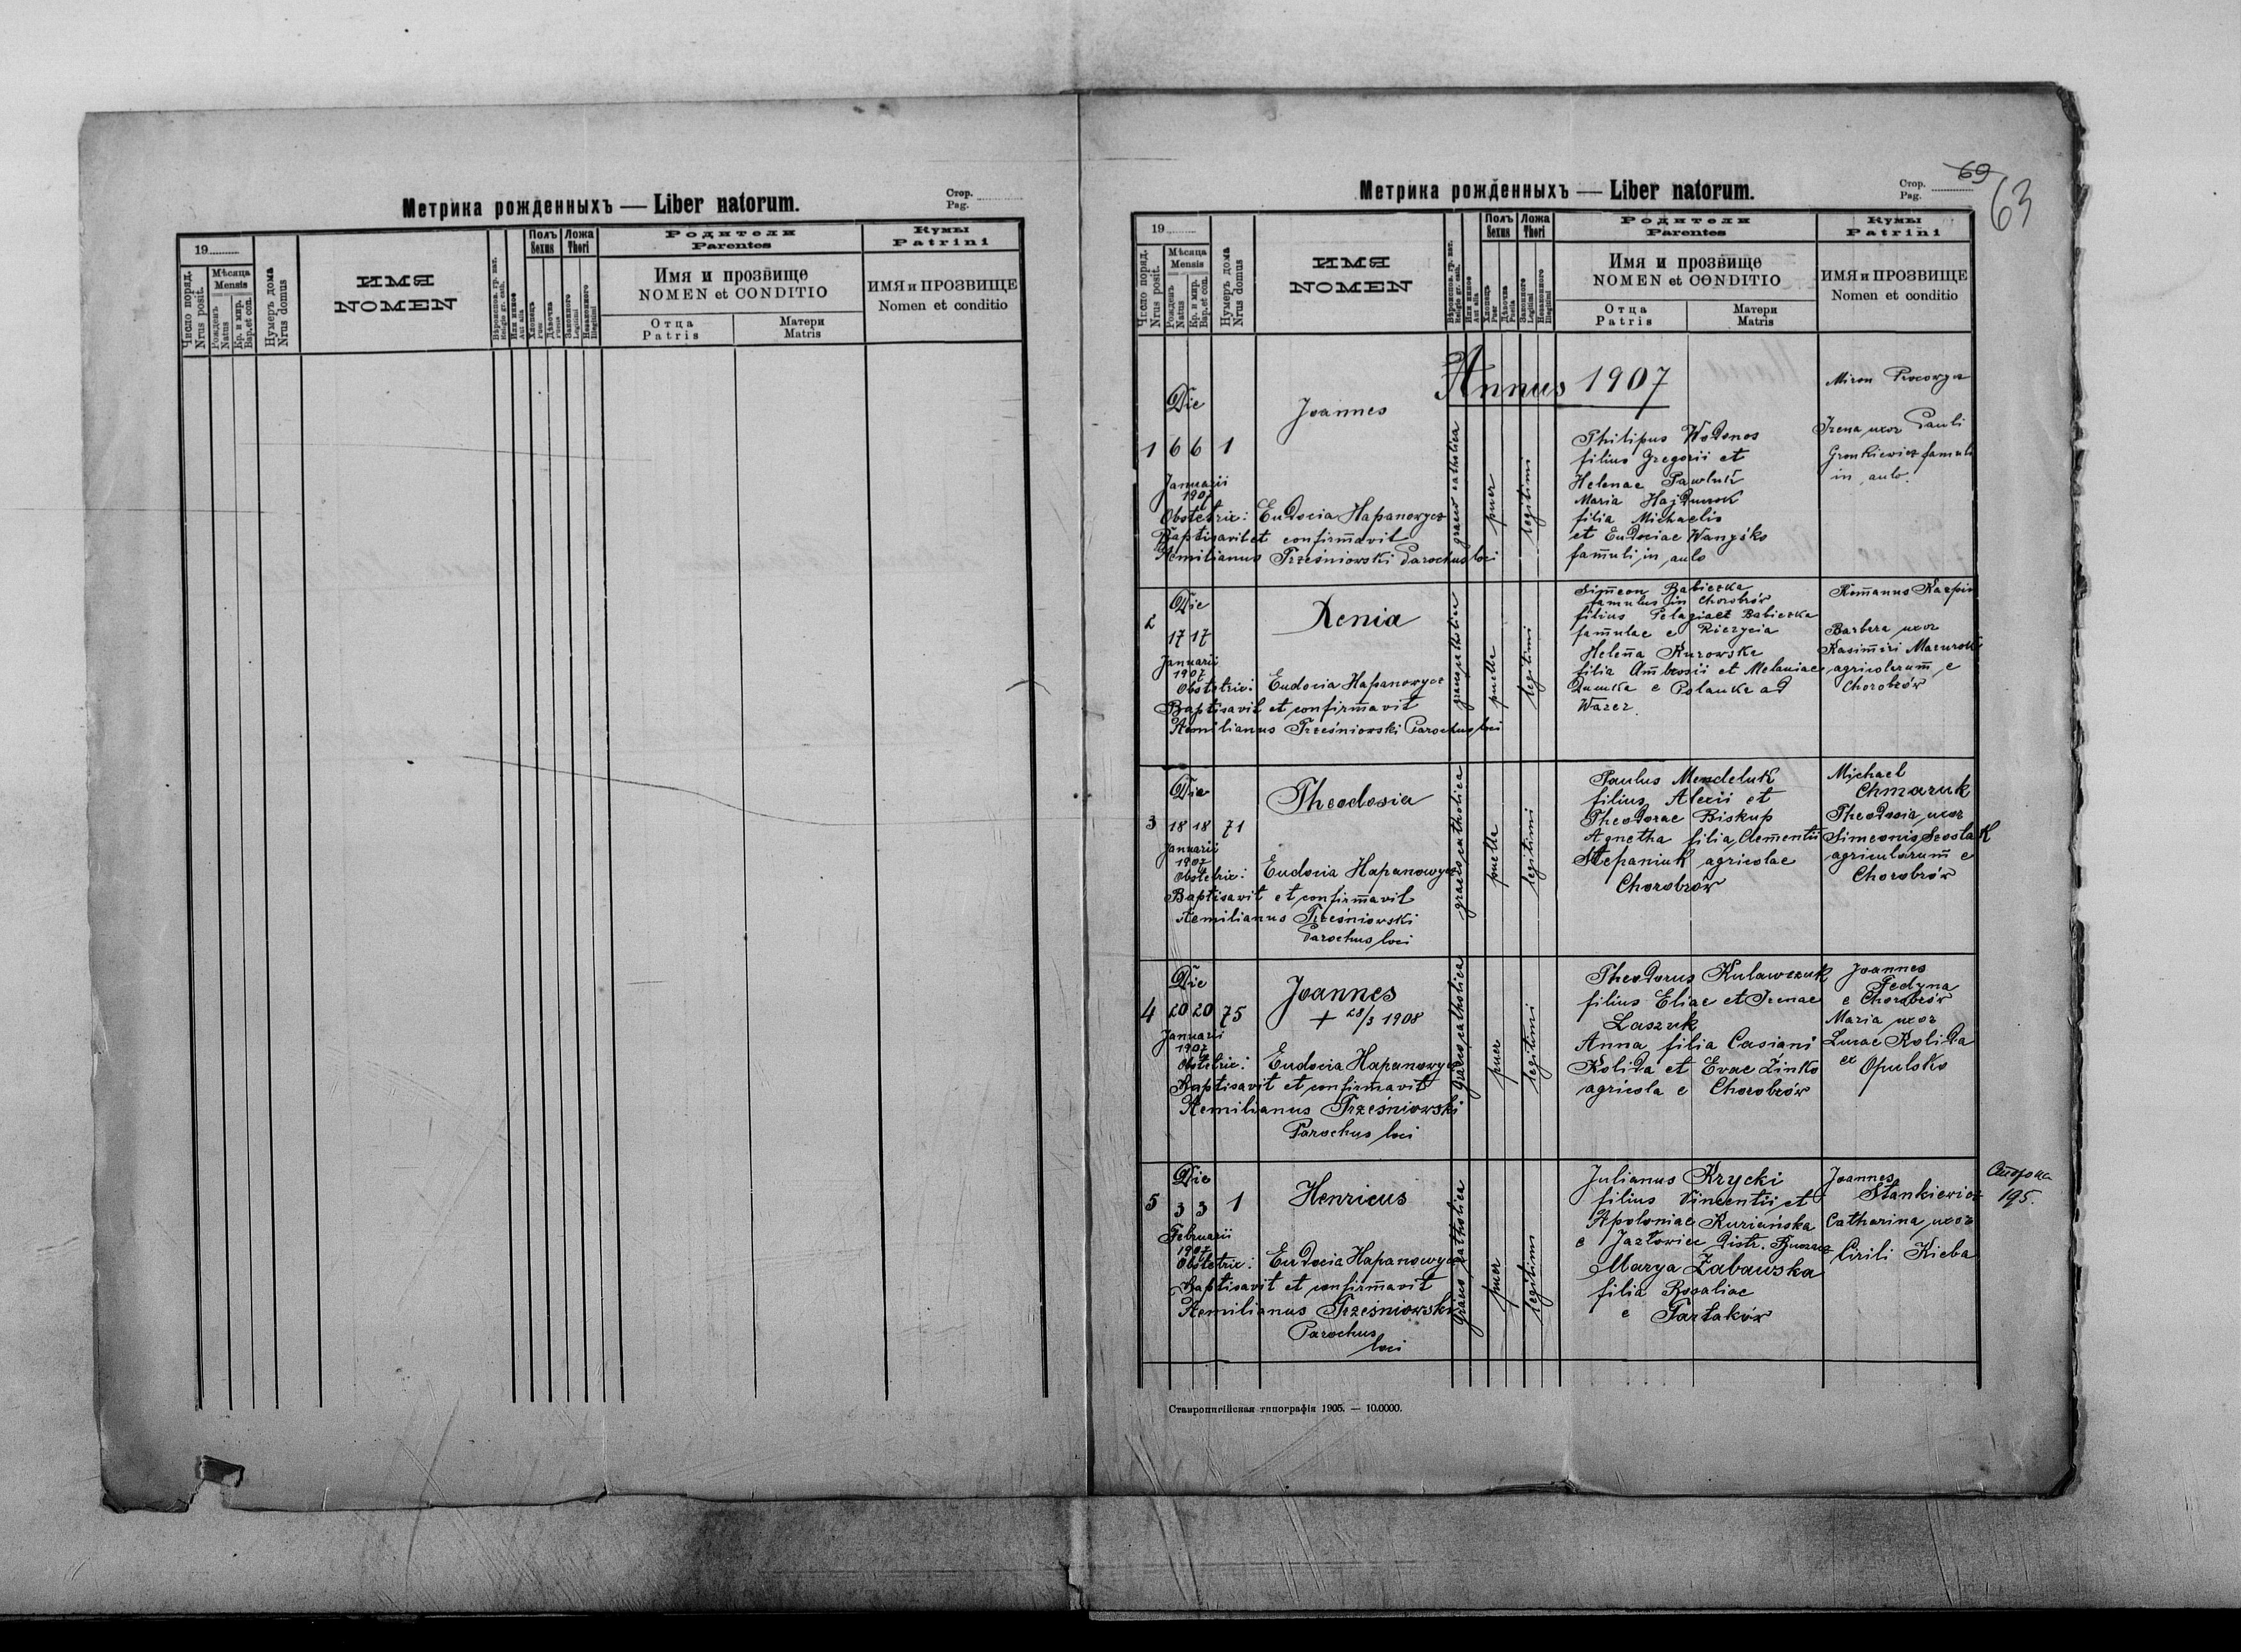 Метрика рожденныхъ — Liber natorum.
Стор.
Pag.
19
Число поряд.
Nrus posit.
Мѣсяца
Mensis
Рожденъ
Natus
Кр. и мир.
Bap. et con.
Нумеръ дома
Nrus domus
ИМЯ
NOMEN
Вѣроиспов. гр. кат.
Religio gr. cath.
Или инное
Aut alia
Полъ
Sexus
Хлопецъ
Puer
Дѣвочка
Puella
Ложа
Thori
Законного
Legitimi
Незаконного
Illegitimi
Родители
Parentes
Имя и прозвище
NOMEN et CONDITIO
Отца
Patris
Матери
Matris
Кумы
Patrini
ИМЯ и ПРОЗВИЩЕ
Nomen et conditio
Метрика рожденныхъ — Liber natorum.
Стор.
Pag.
69
63
19
Число поряд.
Nrus posit.
Мѣсяца
Mensis
Рожденъ
Natus
Кр. и мир.
Bap. et con.
Нумеръ дома
Nrus domus
ИМЯ
NOMEN
Вѣроиспов. гр. кат.
Religio gr. cath.
Или инное
Aut alia
Полъ
Sexus
Хлопецъ
Puer
Дѣвочка
Puella
Ложа
Thori
Законного
Legitimi
Незаконного
Illegitimi
Родители
Parentes
Имя и прозвище
NOMEN et CONDITIO
Отца
Patris
Матери
Matris
Кумы
Patrini
ИМЯ и ПРОЗВИЩЕ
Nomen et conditio
Annus 1907
Die
1 6 6 1
Januarii
1907
Joannes
Obstetrix: Eudocia Hapanowycz
Baptisavit et confirmavit
Aemilianus Trześniowski Parochus loci
graeco catholica
puer
legitimi
Philipus Wodonos
filius Gregorii et
Helenae Pawluk
Maria Hajduczok
filia Michaelis
et Eudociae Wanyśko
famuli in aulo
Miron
Irena uxor Pauli
Gronkiewicz famuli
in aulo.
Die
2 17 17
Januarii
1907
Xenia
Obstetrix: Eudocia Hapanowycz
Baptisavit et confirmavit
Aemilianus Trześniowski Parochus loci
graeco catholica
puella
legitimi
Simeon Babiczka
famulus in Chorobrów
filius Pelagiae Babiczka
famulae e
Helena Kurowska
filia Ambrosii et Melaniae
e ad
Romanus Karpiu
Barbara uxor
Kasimiri Mazurok
agricolarum e
Chorobrów
Die
3 18 18 71
Januarii
1907
Theodosia
Obstetrix: Eudocia Hapanowycz
Baptisavit et confirmavit
Aemilianus Trześniowski
Parochus loci
graeco catholica
puella
legitimi
Paulus Mendeluk
filius Alexii et
Theodorae Biskup
Agnetha filia Clementii
Stepaniuk agricolae
Chorobrów
Michael
Chmaruk
Theodosia uxor
Simeonis Szostak
agricolarum e
Chorobrów
Die
4 20 20 75
Januarii
1907
Joannes
+ 28/3 1908
Obstetrix: Eudocia Hapanowycz
Baptisavit et confirmavit
Aemilianus Trześniowski
Parochus loci
graeco catholica
puer
legitimi
Theodorus Kulawczuk
filius Eliae et Irenae
Laszuk
Anna filia Casiani
Kolida et Evae Zinko
agricola e Chorobrów
Joannes
Fedyna
e Chorobrów
Maria uxor
Lucae Kolida
ex Opulsko
Die
5 3 3 1
Februarii
1907
Henricus
Obstetrix: Eudocia Hapanowycz
Baptisavit et confirmavit
Aemilianus Trześniowski
Parochus
loci
graeco catholica
puer
legitimi
Julianus Krycki
filius Vincentii et
Apoloniae Kuriańska
e Jazłowiec Distr. Buczacz
Marya Zabawska
filia Rosaliae
e Tartaków
Joannes
Stankiewicz
Catharina uxor
Cirili Kieba
195.
Ставропигійская типографія 1905. — 10.0000.